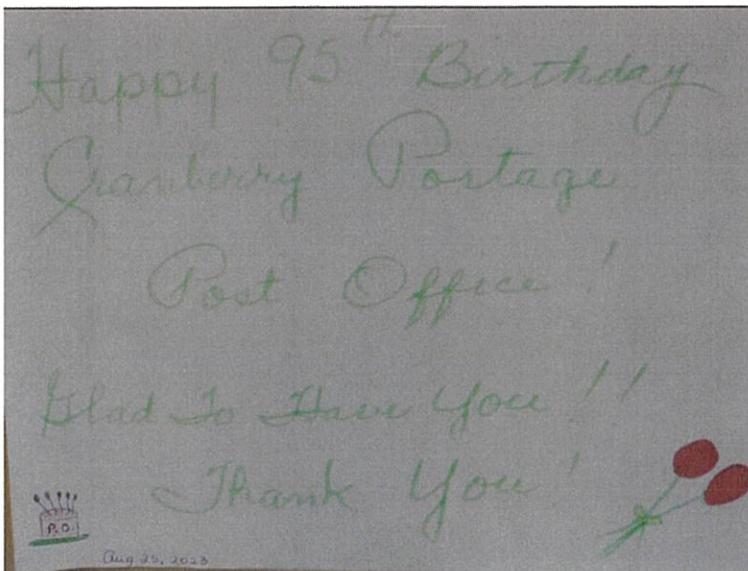 Happy 95th Birthday
Cranberry Portage
Post Office!
Glad To Have You!!
Thank You!
P.O.
Aug 25, 2023